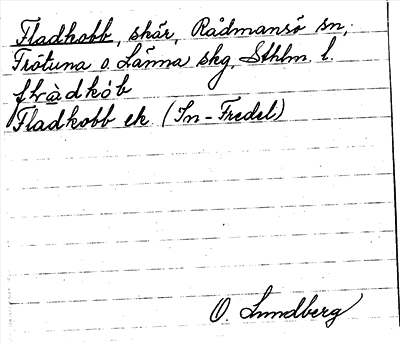 Fladkobb, skär, Rådmansö sn,
Frötuna o. Länna skg, Sthlm. l.
flàdkòb
Fladkobb ek. (In-Fredel)
O. Lundberg